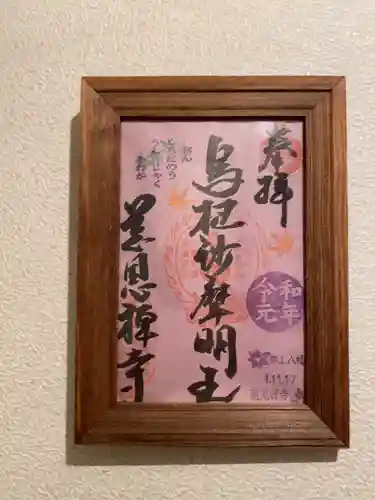 奉拝
烏枢沙摩明王
慈恩禅寺
令和
元年
郡上八幡
1.11.17